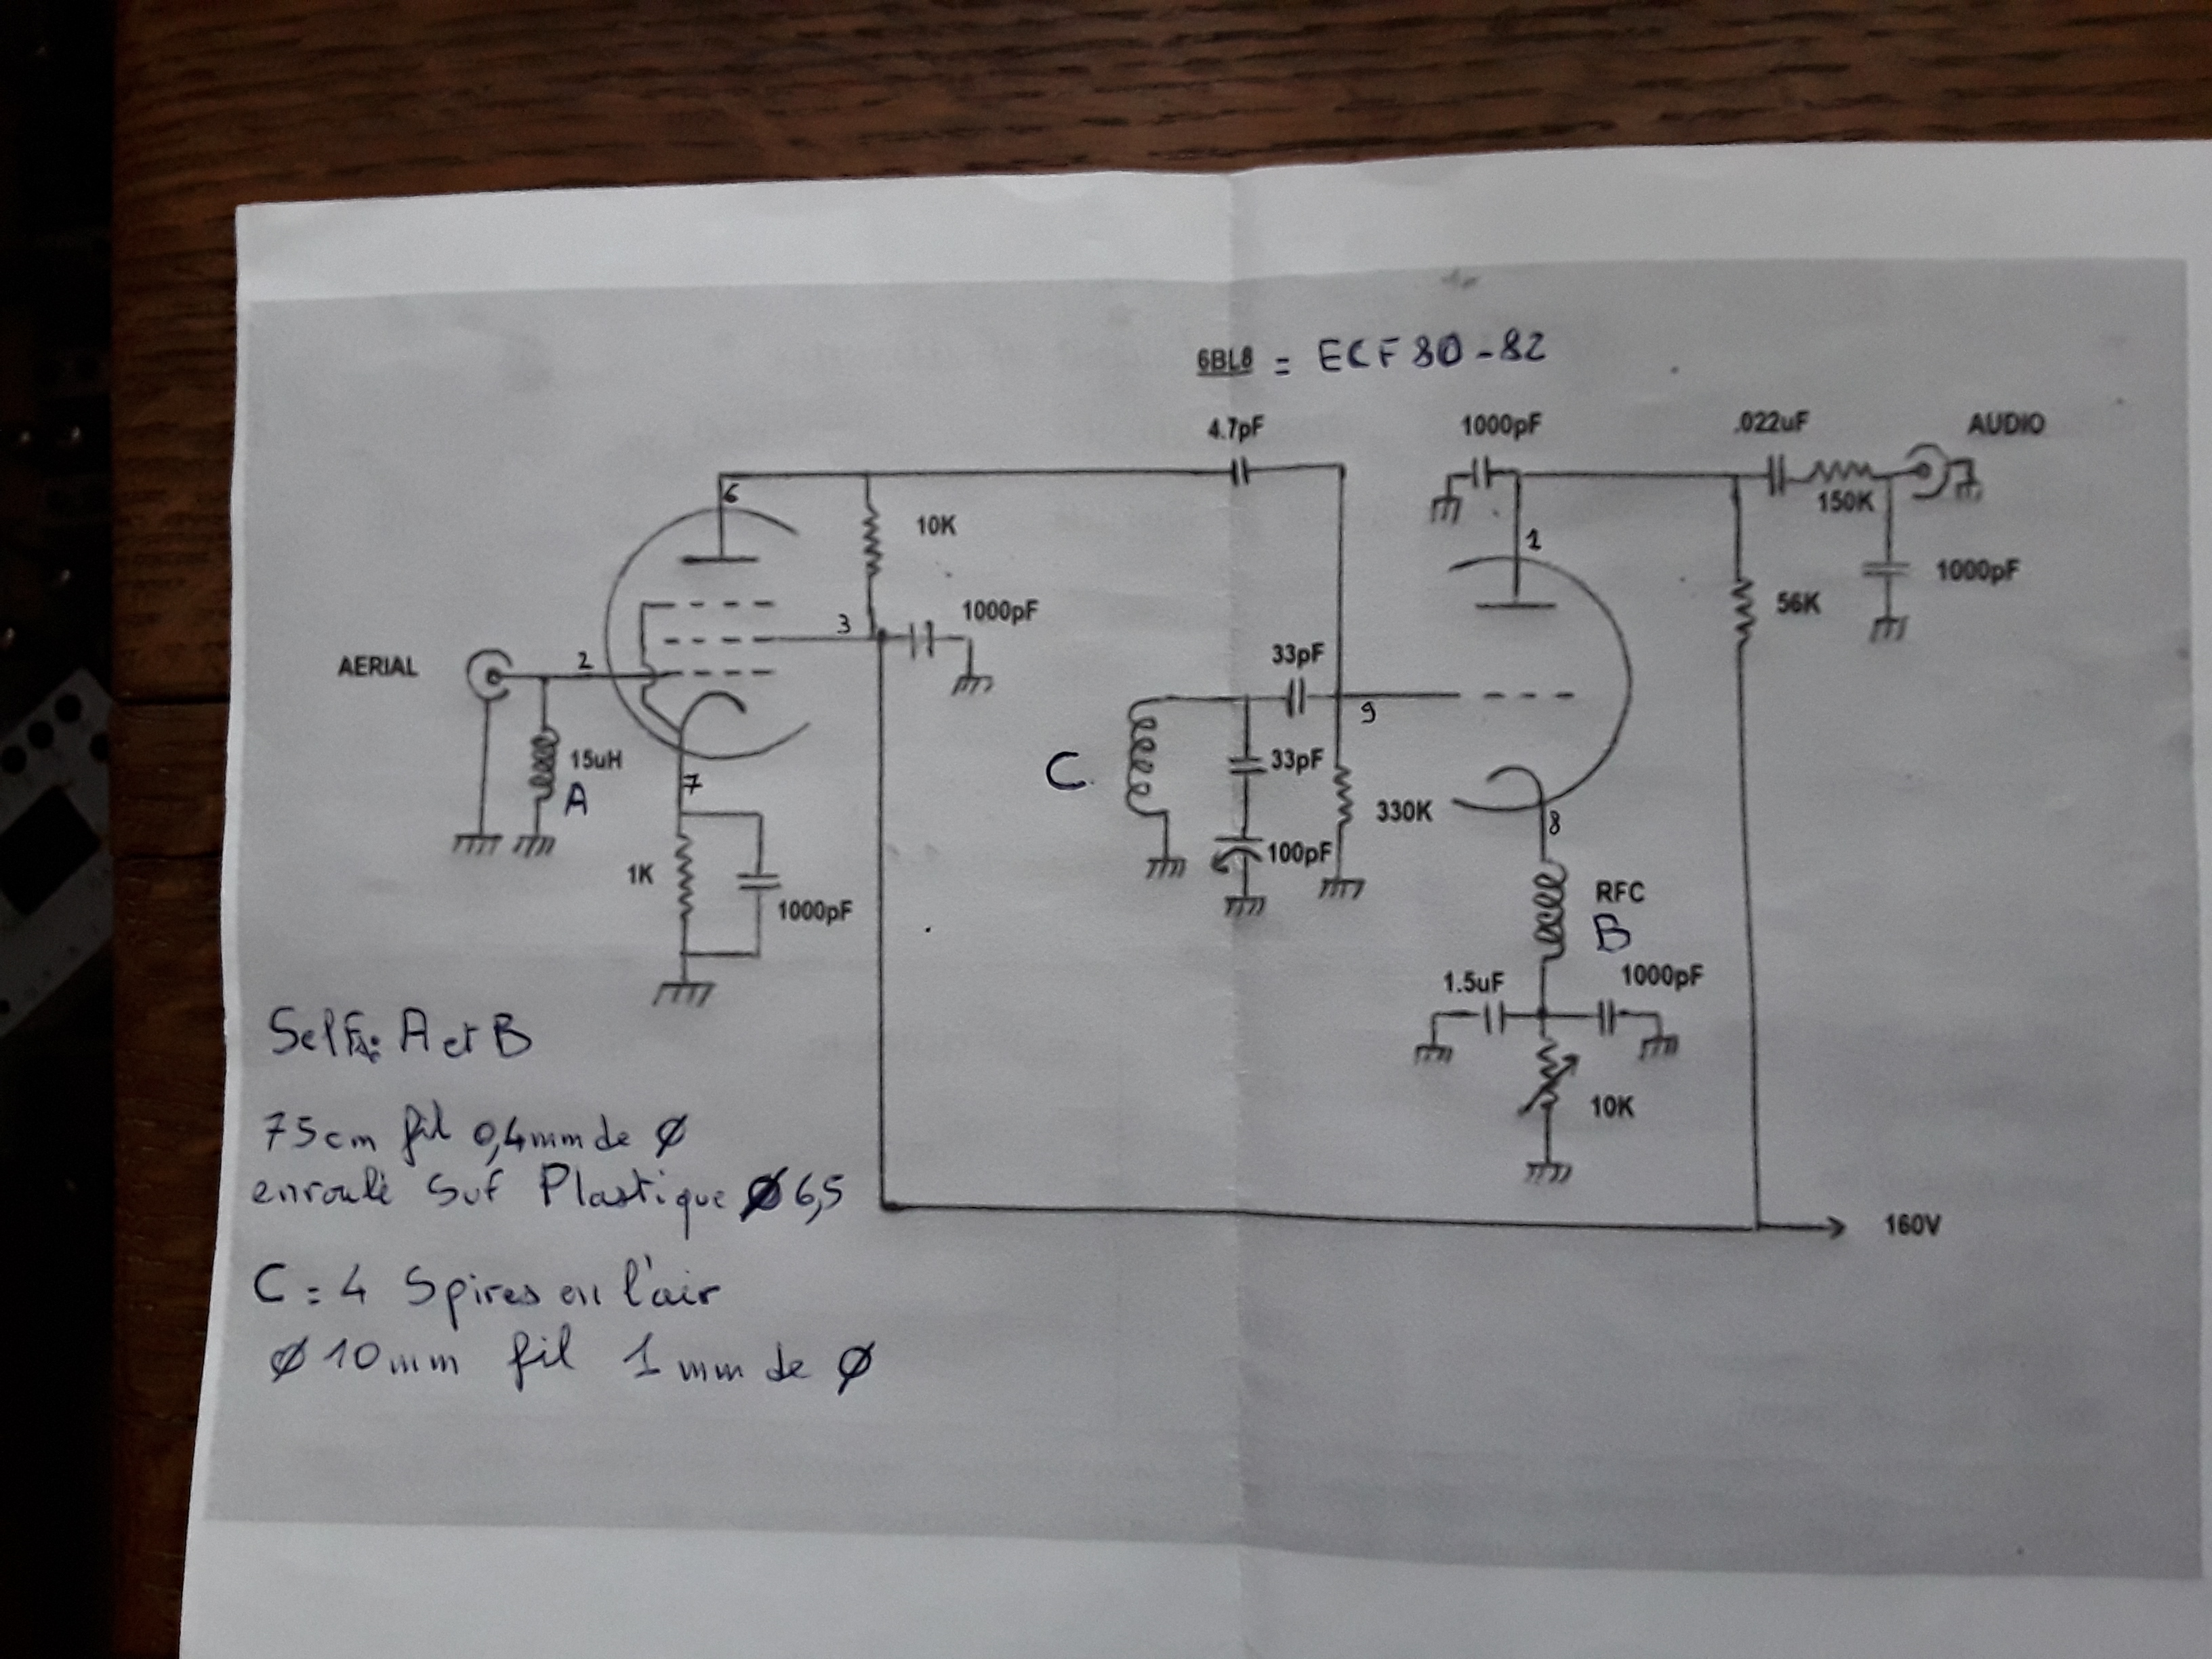 6BL8 = ECF 80-82
4.7pF
1000pF
.022uF
AUDIO
6
10K
150K
1
1000pF
56K
3
1000pF
AERIAL
2
33pF
9
C
33pF
15uH
A
7
330K
8
100pF
1K
1000pF
RFC
B
1.5uF
1000pF
10K
160V
Selfs: A et B
75cm fil 0,4mm de Ø
enroulé sur Plastique Ø 6,5
C = 4 Spires en l'air
Ø 10mm fil 1mm de Ø